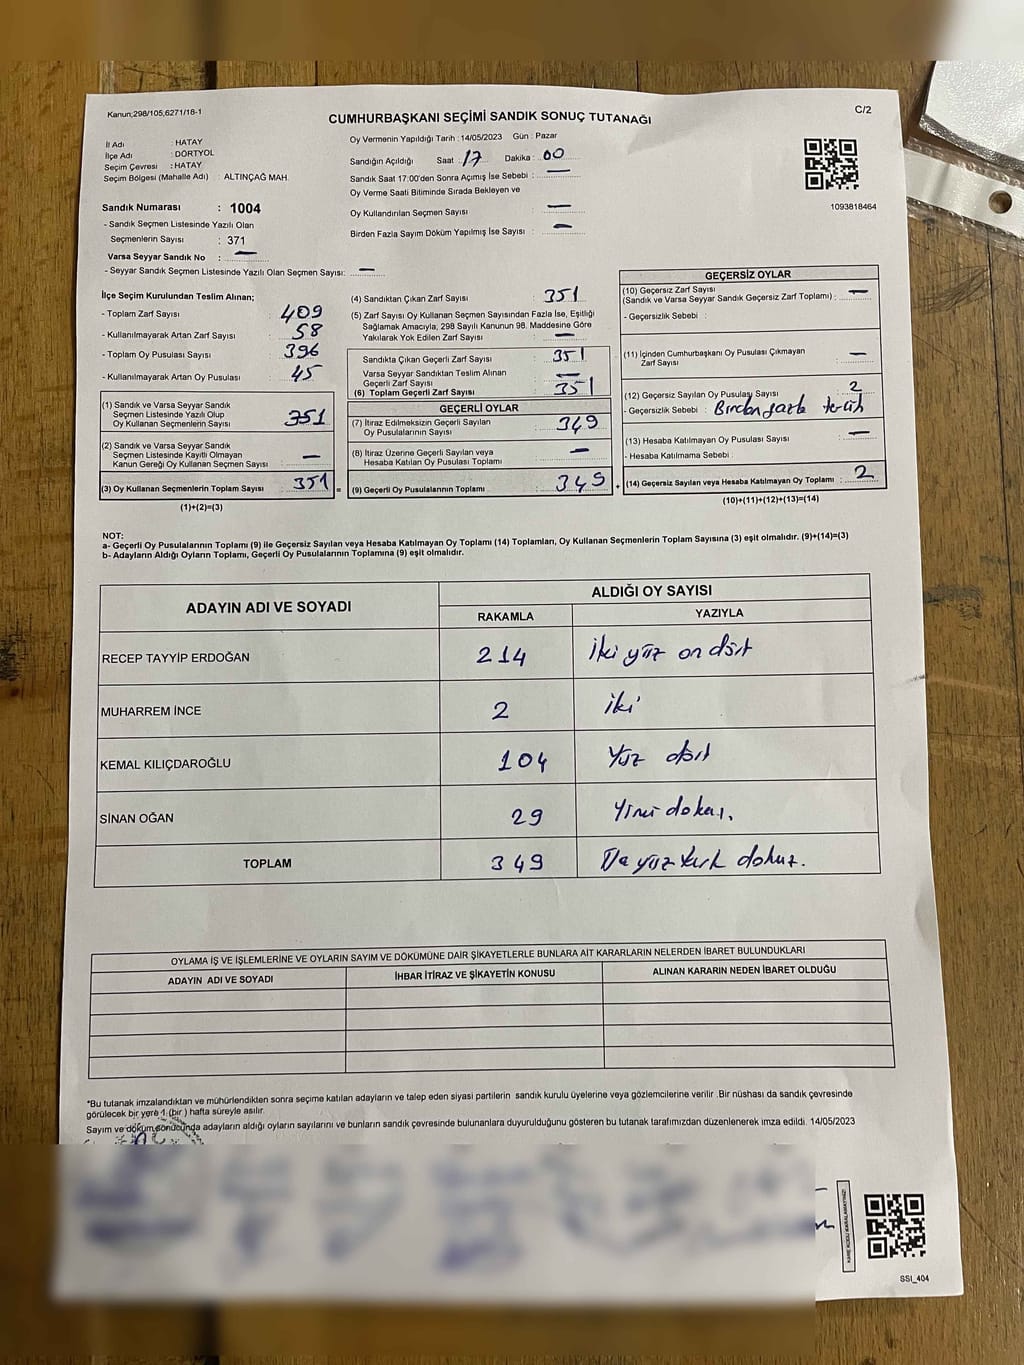 Kanun;298/105;6271/18-1
C/2
CUMHURBAŞKANI SEÇİMİ SANDIK SONUÇ TUTANAĞI
İl Adı : HATAY
İlçe Adı : DÖRTYOL
Seçim Çevresi : HATAY
Seçim Bölgesi (Mahalle Adı) : ALTINÇAĞ MAH.
Sandık Numarası : 1004
- Sandık Seçmen Listesinde Yazılı Olan
Seçmenlerin Sayısı : 371
Varsa Seyyar Sandık No : —
- Seyyar Sandık Seçmen Listesinde Yazılı Olan Seçmen Sayısı: —
Oy Vermenin Yapıldığı Tarih : 14/05/2023 Gün : Pazar
Sandığın Açıldığı Saat : 17 Dakika : 00
Sandık Saat 17:00'den Sonra Açımış İse Sebebi : —
Oy Verme Saati Bitiminde Sırada Bekleyen ve
Oy Kullandırılan Seçmen Sayısı : —
Birden Fazla Sayım Döküm Yapılmış İse Sayısı : —
1093818464
İlçe Seçim Kurulundan Teslim Alınan;
- Toplam Zarf Sayısı : 409
- Kullanılmayarak Artan Zarf Sayısı : 58
- Toplam Oy Pusulası Sayısı : 396
- Kullanılmayarak Artan Oy Pusulası : 45
(1) Sandık ve Varsa Seyyar Sandık
Seçmen Listesinde Yazılı Olup
Oy Kullanan Seçmenlerin Sayısı : 351
(2) Sandık ve Varsa Seyyar Sandık
Seçmen Listesinde Kayıtlı Olmayan
Kanun Gereği Oy Kullanan Seçmen Sayısı : —
(3) Oy Kullanan Seçmenlerin Toplam Sayısı : 351 =
(1)+(2)=(3)
(4) Sandıktan Çıkan Zarf Sayısı : 351
(5) Zarf Sayısı Oy Kullanan Seçmen Sayısından Fazla İse, Eşitliği
Sağlamak Amacıyla, 298 Sayılı Kanunun 98. Maddesine Göre
Yakılarak Yok Edilen Zarf Sayısı : —
Sandıkta Çıkan Geçerli Zarf Sayısı : 351
Varsa Seyyar Sandıktan Teslim Alınan
Geçerli Zarf Sayısı : —
(6) Toplam Geçerli Zarf Sayısı : 351
GEÇERLİ OYLAR
(7) İtiraz Edilmeksizin Geçerli Sayılan
Oy Pusulalarının Sayısı : 349
(8) İtiraz Üzerine Geçerli Sayılan veya
Hesaba Katılan Oy Pusulası Toplamı : —
(9) Geçerli Oy Pusulalarının Toplamı : 349 +
GEÇERSİZ OYLAR
(10) Geçersiz Zarf Sayısı
(Sandık ve Varsa Seyyar Sandık Geçersiz Zarf Toplamı) : —
- Geçersizlik Sebebi :
(11) İçinden Cumhurbaşkanı Oy Pusulası Çıkmayan
Zarf Sayısı : —
(12) Geçersiz Sayılan Oy Pusulası Sayısı : 2
- Geçersizlik Sebebi : Birden fazla tercih
(13) Hesaba Katılmayan Oy Pusulası Sayısı : —
- Hesaba Katılmama Sebebi :
(14) Geçersiz Sayılan veya Hesaba Katılmayan Oy Toplamı : 2
(10)+(11)+(12)+(13)=(14)
NOT:
a- Geçerli Oy Pusulalarının Toplamı (9) ile Geçersiz Sayılan veya Hesaba Katılmayan Oy Toplamı (14) Toplamları, Oy Kullanan Seçmenlerin Toplam Sayısına (3) eşit olmalıdır. (9)+(14)=(3)
b- Adayların Aldığı Oyların Toplamı, Geçerli Oy Pusulalarının Toplamına (9) eşit olmalıdır.
ADAYIN ADI VE SOYADI ALDIĞI OY SAYISI
RAKAMLA YAZIYLA
RECEP TAYYİP ERDOĞAN 214 İki yüz on dört
MUHARREM İNCE 2 iki
KEMAL KILIÇDAROĞLU 104 Yüz dört
SİNAN OĞAN 29 Yirmi dokuz.
TOPLAM 349 Üç yüz kırk dokuz.
OYLAMA İŞ VE İŞLEMLERİNE VE OYLARIN SAYIM VE DÖKÜMÜNE DAİR ŞİKAYETLERLE BUNLARA AİT KARARLARIN NELERDEN İBARET BULUNDUKLARI
ADAYIN ADI VE SOYADI İHBAR İTİRAZ VE ŞİKAYETİN KONUSU ALINAN KARARIN NEDEN İBARET OLDUĞU
*Bu tutanak imzalandıktan ve mühürlendikten sonra seçime katılan adayların ve talep eden siyasi partilerin sandık kurulu üyelerine veya gözlemcilerine verilir .Bir nüshası da sandık çevresinde
görülecek bir yere 1 (bir ) hafta süreyle asılır.
Sayım ve döküm sonucunda adayların aldığı oyların sayılarını ve bunların sandık çevresinde bulunanlara duyurulduğunu gösteren bu tutanak tarafımızdan düzenlenerek imza edildi. 14/05/2023
KARE KODU KARALAMAYINIZ!
SSI_404